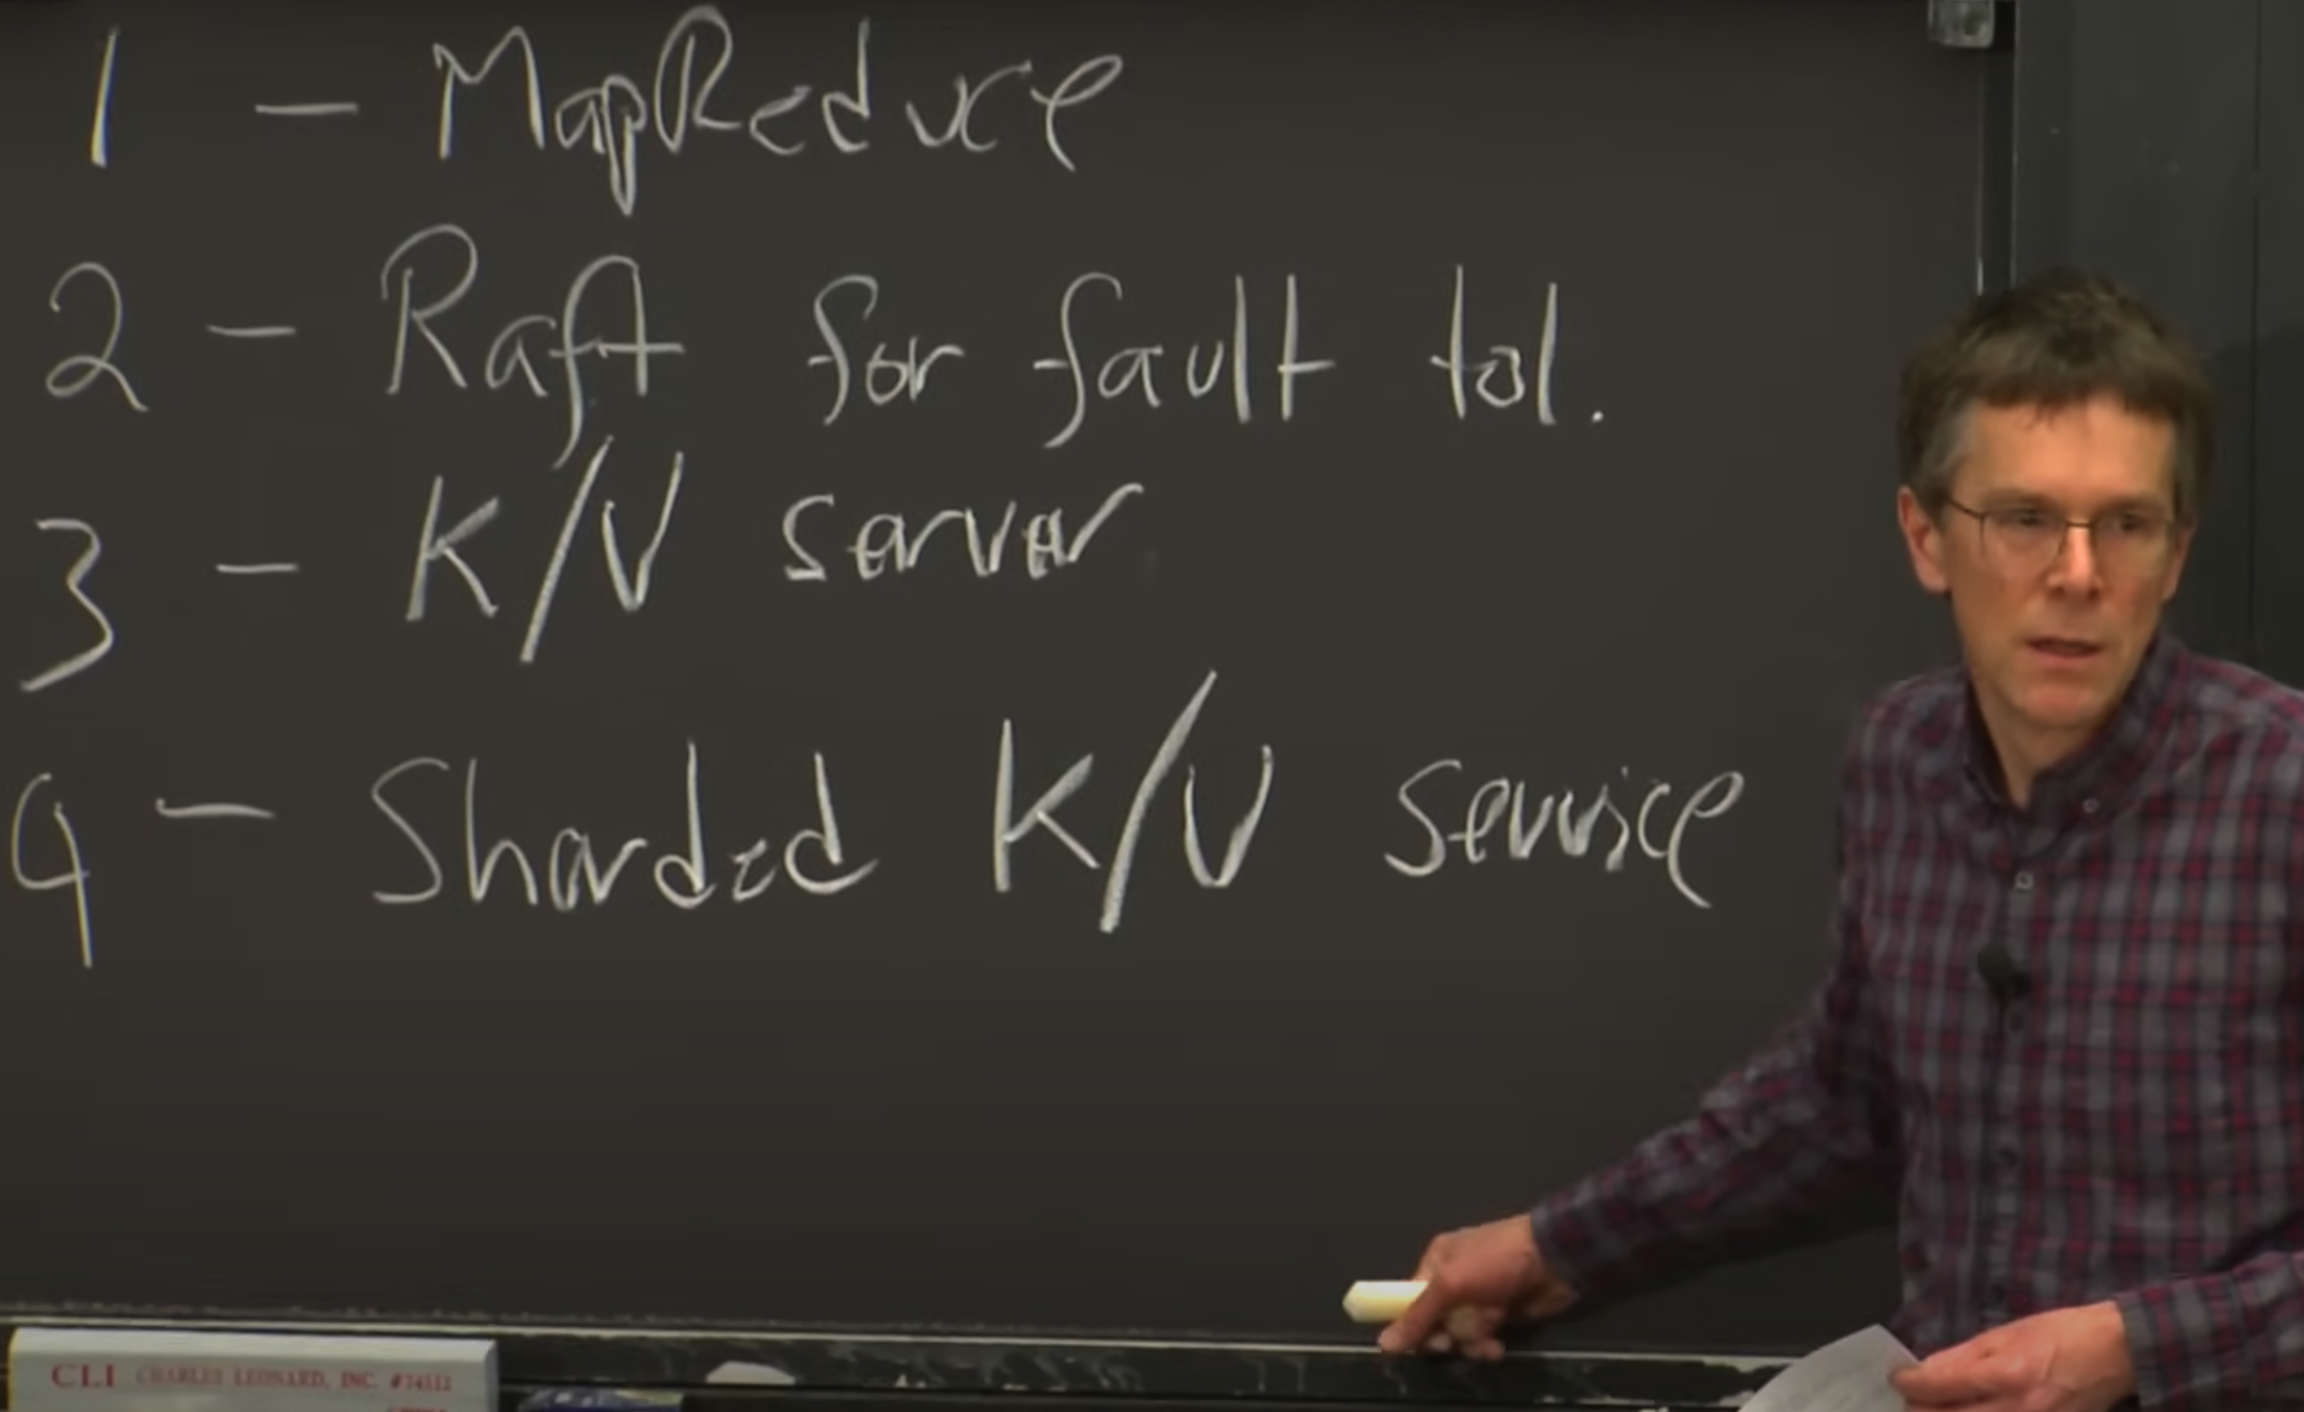 1 – MapReduce
2 – Raft for fault tol.
3 – K/V server
4 – Sharded K/V service
CLI CHARLES LEONARD, INC. #74512